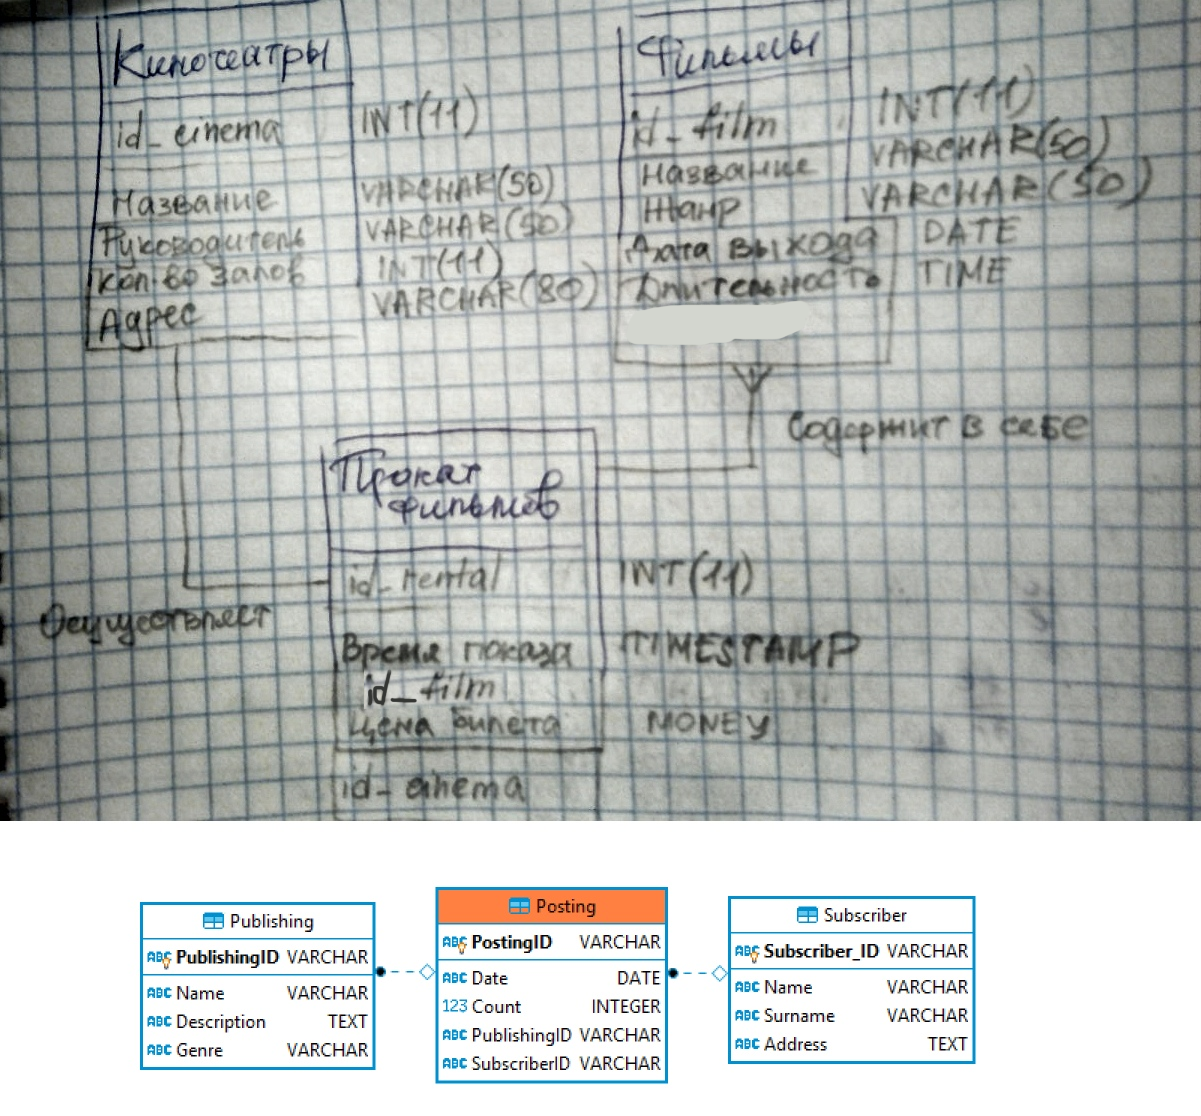 Кинотеатры
id_cinema INT(11)
Название VARCHAR(50)
Руководитель VARCHAR(50)
Кол-во залов INT(11)
Адрес VARCHAR(80)
Фильмы
id_film INT(11)
Название VARCHAR(50)
Жанр VARCHAR(50)
Дата выхода DATE
Длительность TIME
Содержит в себе
Прокат
фильмов
id_rental INT(11)
Осуществляет
Время показа TIMESTAMP
id_film
Цена билета MONEY
id_cinema
Publishing
ABC PublishingID VARCHAR
ABC Name VARCHAR
ABC Description TEXT
ABC Genre VARCHAR
Posting
ABC PostingID VARCHAR
ABC Date DATE
123 Count INTEGER
ABC PublishingID VARCHAR
ABC SubscriberID VARCHAR
Subscriber
ABC Subscriber_ID VARCHAR
ABC Name VARCHAR
ABC Surname VARCHAR
ABC Address TEXT